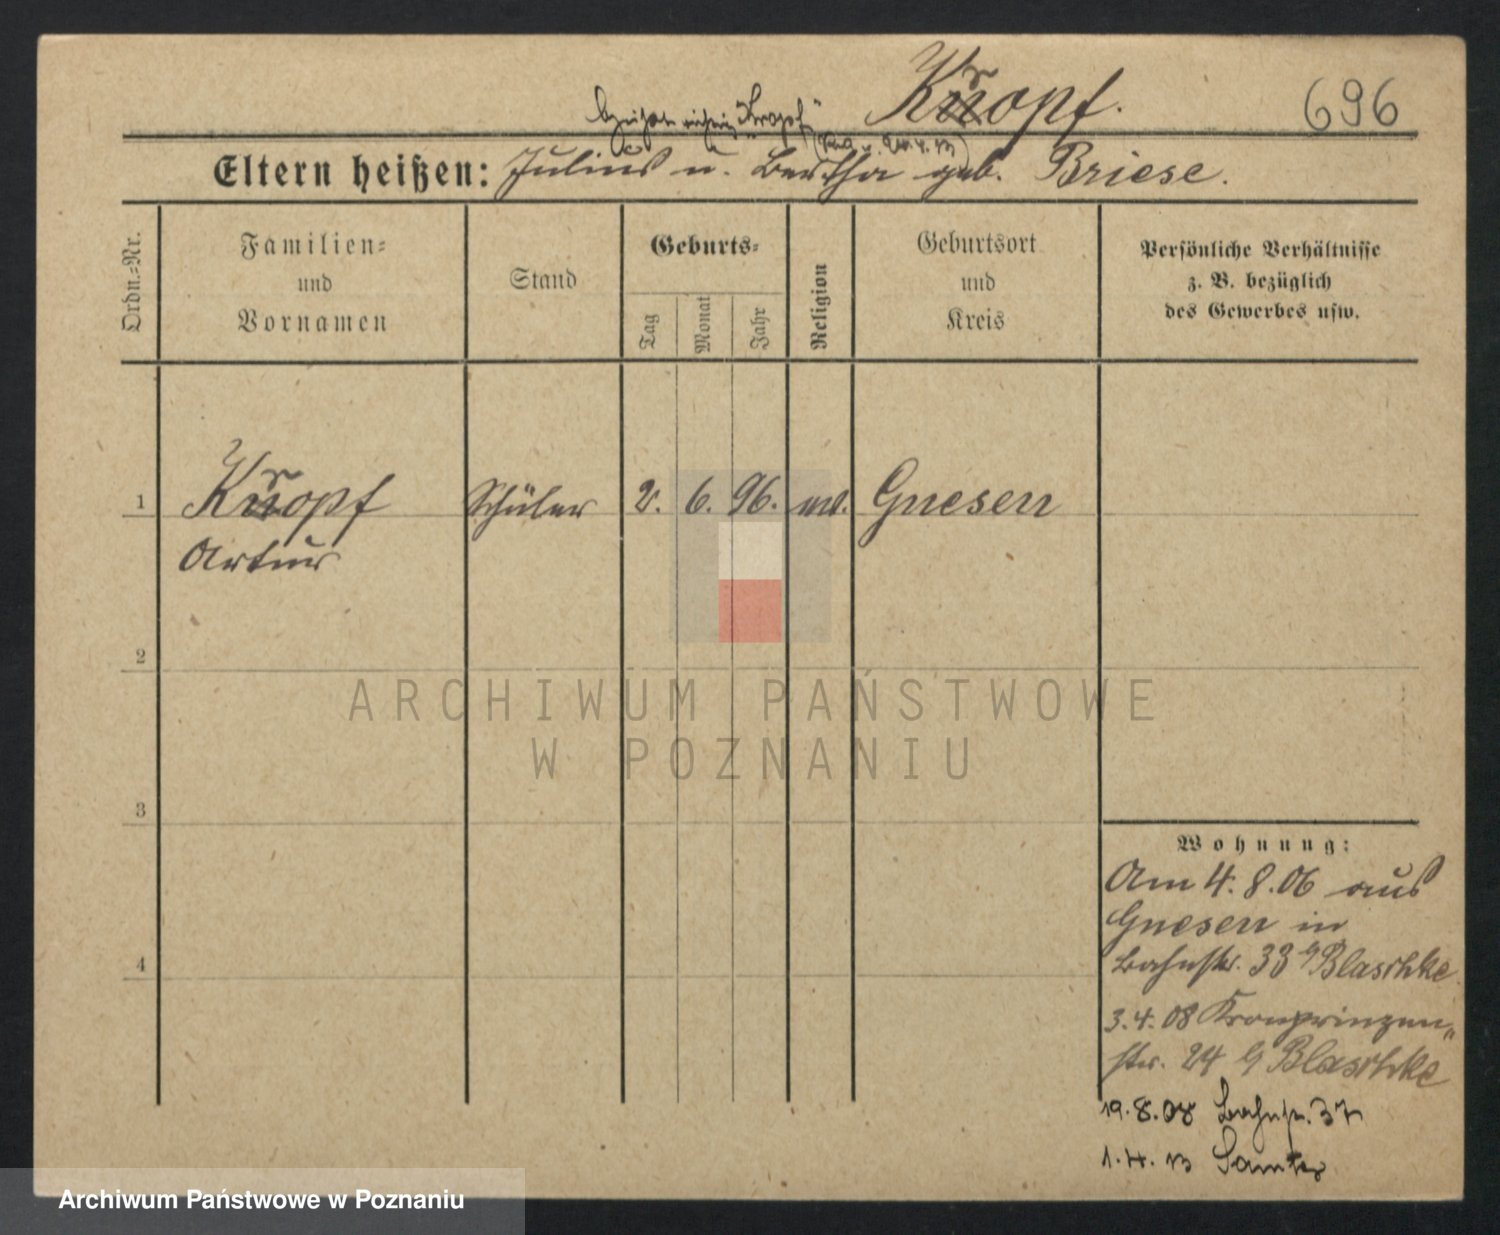 Kropf.
696
heißt richtig "Kropf"
Eltern heißen: Julius u. Bertha geb. Briese.
Ordn.=Nr.
Familien=
und
Vornamen
Stand
Geburts=
Tag
Monat
Jahr
Religion
Geburtsort
und
Kreis
Persönliche Verhältnisse
z. B. bezüglich
des Gewerbes usw.
1 Kropf Schüler 2. 6. 96. Gnesen
Artur
2
ARCHIWUM PAŃSTWOWE
W POZNANIU
3
Wohnung:
Am 4. 8. 06 aus
Gnesen in
Bahnstr. 33 b/ Blaschke
4
3. 4. 08 Kronprinzen„
str. 24 b/ Blaschke
19. 8. 08 Bahnstr. 37
1. 4. 13 Samter
Archiwum Państwowe w Poznaniu